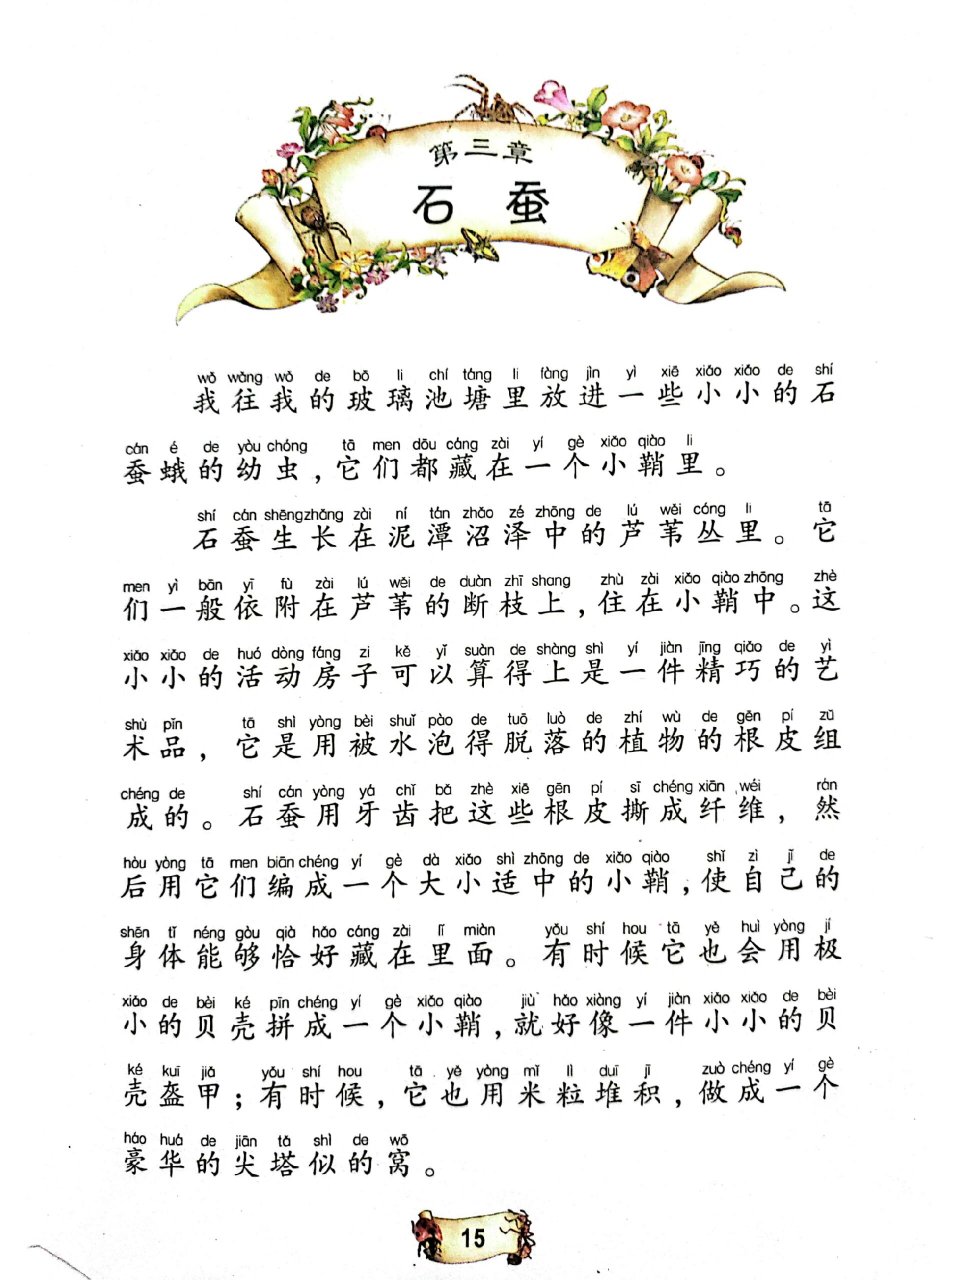 第三章
石 蚕
wǒ wǎng wǒ de bō li chí táng li fàng jìn yì xiē xiǎo xiǎo de shí
我往我的玻璃池塘里放进一些小小的石
cán é de yòu chóng tā men dōu cáng zài yí gè xiǎo qiào li
蚕蛾的幼虫，它们都藏在一个小鞘里。
shí cán shēng zhǎng zài ní tán zhǎo zé zhōng de lú wěi cóng li tā
石蚕生长在泥潭沼泽中的芦苇丛里。它
men yì bān yī fù zài lú wěi de duàn zhī shang zhù zài xiǎo qiào zhōng zhè
们一般依附在芦苇的断枝上，住在小鞘中。这
xiǎo xiǎo de huó dòng fáng zi kě yǐ suàn de shàng shì yí jiàn jīng qiǎo de yì
小小的活动房子可以算得上是一件精巧的艺
shù pǐn tā shì yòng bèi shuǐ pào de tuō luò de zhí wù de gēn pí zǔ
术品，它是用被水泡得脱落的植物的根皮组
chéng de shí cán yòng yá chǐ bǎ zhè xiē gēn pí sī chéng xiān wéi rán
成的。石蚕用牙齿把这些根皮撕成纤维，然
hòu yòng tā men biān chéng yí gè dà xiǎo shì zhōng de xiǎo qiào shǐ zì jǐ de
后用它们编成一个大小适中的小鞘，使自己的
shēn tǐ néng gòu qià hǎo cáng zài lǐ miàn yǒu shí hou tā yě huì yòng jí
身体能够恰好藏在里面。有时候它也会用极
xiǎo de bèi ké pīn chéng yí gè xiǎo qiào jiù hǎo xiàng yí jiàn xiǎo xiǎo de bèi
小的贝壳拼成一个小鞘，就好像一件小小的贝
ké kuī jiǎ yǒu shí hou tā yě yòng mǐ lì duī jī zuò chéng yí gè
壳盔甲；有时候，它也用米粒堆积，做成一个
háo huá de jiān tǎ shì de wō
豪华的尖塔似的窝。
15